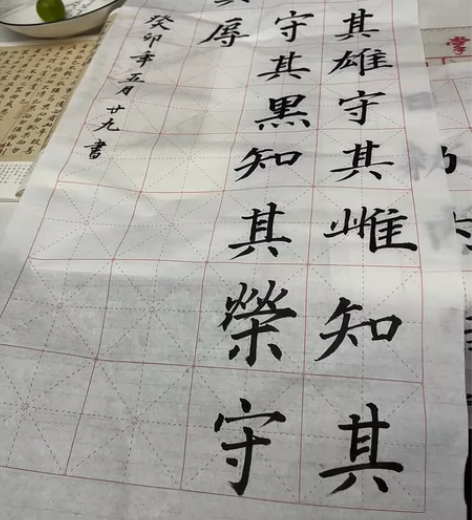 其雄守其雌知其
守其黑知其榮守
其辱
癸卯年五月廿九書